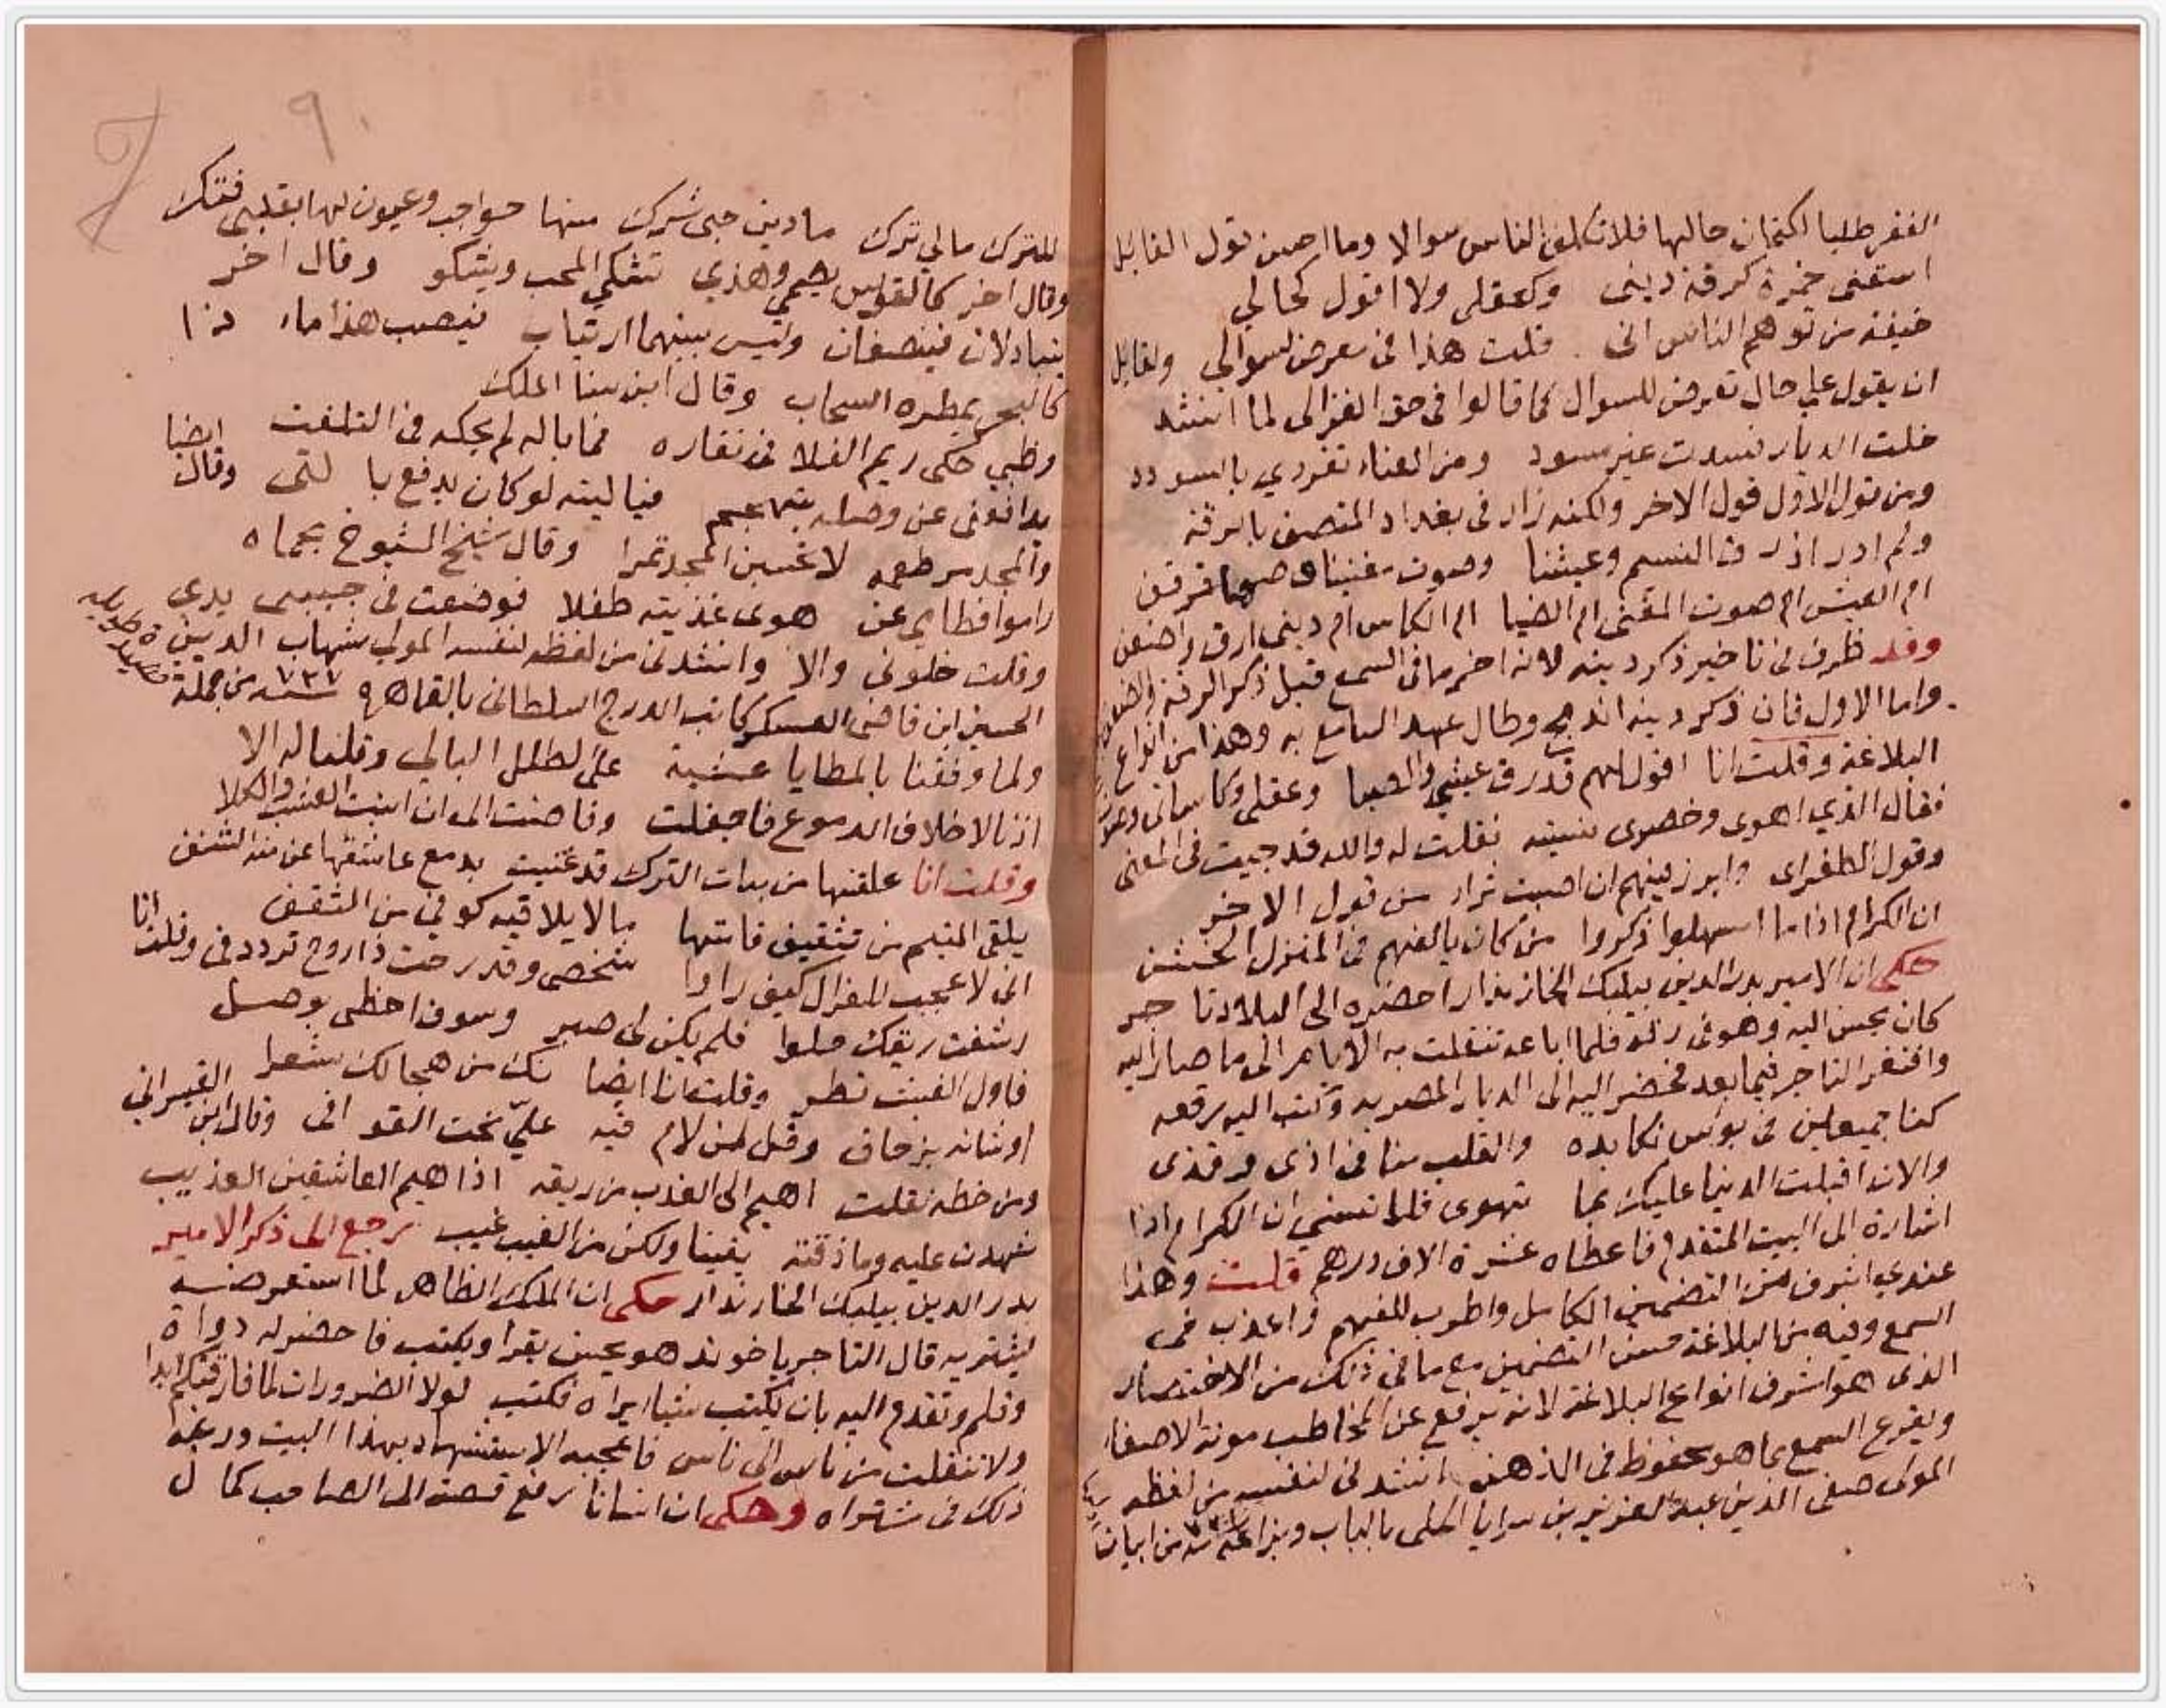 الفقر طلبا لكتمان حالها فلا تكلف الناس سوالا وما احسن قول القايل
اسقنى خمرة كرقة دينى وكعقلى ولا اقول كحالي
خيفة من توهم الناس انى قلت هذا فى معرض لسوالي ولقايل
ان يقول علي حال تعرض للسوال كما قالوا فى حق الغزالى لما انشد
خلت الديار فسدت غير مسود ومن العناء تفردي بالسودد
ومن قول الاول قول الاخر ولكنه زاد فى بغداد المتصف بالرقة
ولم ادر اذ رق النسيم وعيشنا وصوت مغنينا صهبا قرقف
ام العيش ام صوت المغنى ام الضيا ام الكاس ام دينى ارق واضعف
وقد ظرف فى تاخير ذكر دينه لانه اخر ما فى السمع قبل ذكر الرقة والضعف
واما الاول فان ذكر دينه اندمج وطال عهد السامع به وهذا من انواع
البلاغة وقلت انا اقول لهم قد رق عيشي والصبا وعقلى وكاساتى
فقال الذي اهوى وخصرى نسيته فقلت له والله قد جيت فى المعنى
وقول الطغراى وابرز بينهم ان اصبت من قول الاخر
ان الكرام اذا ما اسهلوا ذكروا من كان يالفهم فى المنزل الخشن
حكى ان الامير بدر الدين بيلبك الخازندار احضره الى البلاد تاجر
كان يحسن اليه وهو فى رقه فلما اباعه تنقلت به الايام الى ما صار اليه
وافتقر التاجر فيما بعد فحضر اليه الى الديار المصريه وكتب اليه رقعه
كنا جميعين فى بوس نكابده والقلب منا فى اذى وقذى
والان اقبلت الدنيا عليك بما تهوى فلا تنسني ان الكرام اذا
اشارة الى البيت المتقدم فاعطاه عشرة الاف درهم قلت وهذا
عندي اشرف من التضمين الكامل واطرب للفهم واعذب فى
السمع وفيه من البلاغة حسن التضمين مع ما فى ذلك من الاختصار
الذى هو اشرف انواع البلاغة لانه يرفع عن المخاطب مونة الاصغا
ويقرع السمع بما هو محفوظ فى الذهن انشدنى لنفسه من لفظه
المولى صفى الدين عبد العزيز بن سرايا الحلى بالباب وبزاعه من ابيات
٩٠
للترك مالي ترك ما دين حبى شرك منها حواجب وعيون لها بقلبى فتك
وقال اخر كالقوس يصمي وهذي تشكي المحب ويشكو وقال اخر
يتبادلان فينصفان وليس بينهما ارتياب فيصب هذا ماء ذا
كالبحر يمطره السحاب وقال ابن سنا الملك
وظبي حكى ريم الفلا فى نفاره فما باله لم يحكه فى التلفت ايضا
يدافعنى عن وصله بتهجم فيا ليته لو كان يدفع بالتى وقال
والمجد مر طعمه لا تحسبن المجد تمرا وقال شيخ الشيوخ بحماه
راموا فطامي عن هوى غذيته طفلا فوضعت فى جيبى يدى
وقلت خلونى والا وانشدنى من لفظه لنفسه المولى شهاب الدين
الحسين ابن قاضى العسكر كاتب الدرج السلطانى بالقاهرة سنة ٧٣٧ من جملة
قصيدة طويله
ولما وقفنا بالمطايا عشية على الطلل البالي وقلنا له الا
اذنا لاخلاف الدموع فاحفلت وفاضت الى ان انبت العشب والكلا
وقلت انا علقتها من بنات الترك قد غنيت بدمع عاشقها عن منة الشنف
يلقى المتيم من تثقيف قامتها ما لا يلاقيه كوفي من الثقفى
انى لاعجب للغزال كيف راوا شخصى وقد رحت ذا روح تردد فى وقلت انا
رشفت ريقك حلوا فلم يكن لى صبر وسوف احظى بوصل
فاول الغيث قطر وقلت انا ايضا لك من هجالك شعرا
اوشانه بزحاف وقل لمن لام فيه عليّ نحت القوافى وقال ابن القيسرانى
ومن خطه نقلت اهيم الى العذب من ريقه اذا هيم العاشقين العذيب
شهدت عليه وما ذقته يقينا ولكن من الغيب غيب نرجع الى ذكر الامير
بدر الدين بيلبك الخازندار حكى ان الملك الظاهر لما استعرضه
ليشتريه قال التاجر يا خوند هو يحسن يقرا ويكتب فاحضر له دواة
وقلم وتقدم اليه بان يكتب شيا يراه فكتب لولا الضرورات لما فارقتكم ابدا
ولا تنقلت من ناس الى ناس فاعجبه الاستشهاد بهذا البيت ورغبه
ذلك فى شتراه وحكى ان انسانا رفع قصة الى الصاحب كمال